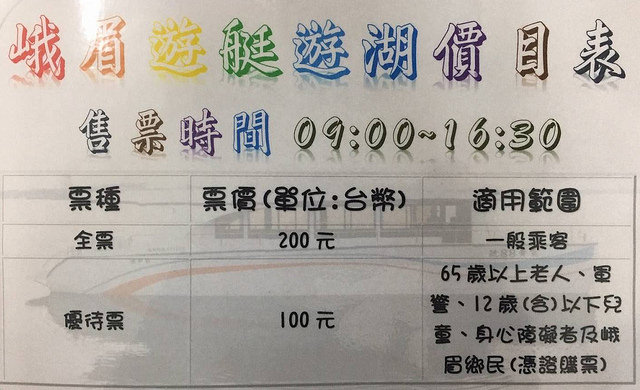 峨眉遊艇遊湖價目表
售票時間 09:00~16:30
票種 票價(單位:台幣) 適用範圍
全票 200 元 一般乘客
優待票 100 元 65 歲以上老人、軍
警、12 歲(含)以下兒
童、身心障礙者及峨
眉鄉民(憑證購票)